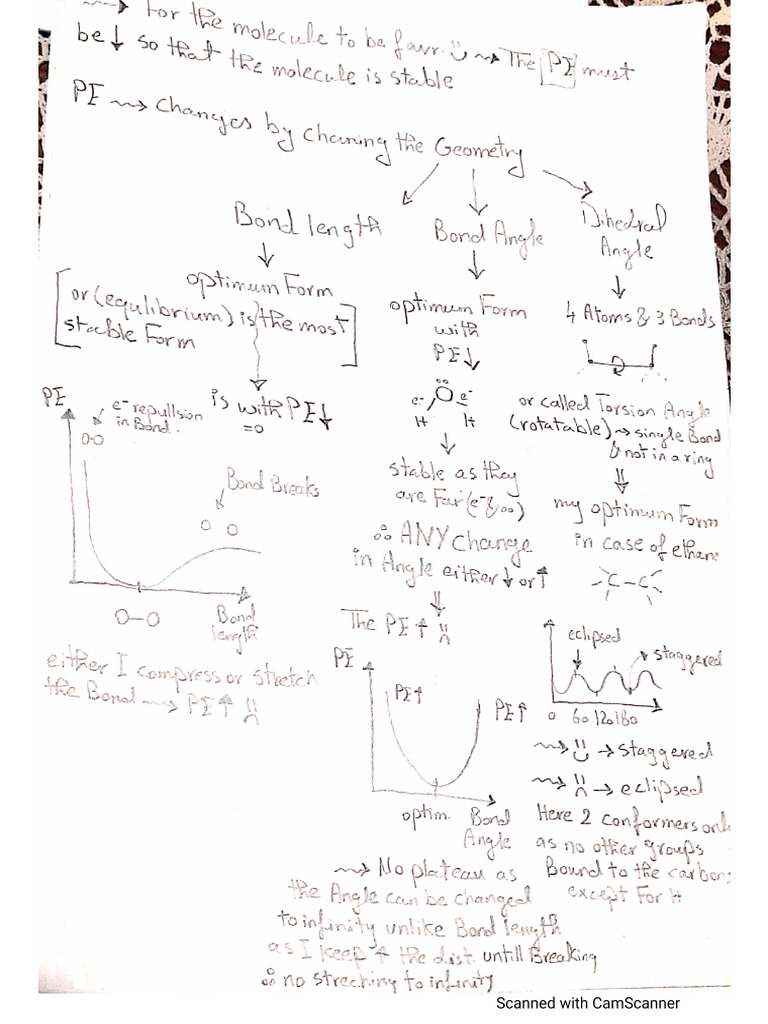 ⇝ For the molecule to be favr. ⇝ The PE must
be ↓ so that the molecule is stable
PE ⇝ changes by chaning the Geometry
Bond length
↓
optimum Form
[or (equlibrium) is the most
stable Form]
is with PE↓
=0
PE
e⁻ repullsion
in Bond.
Bond Breaks
Bond
length
either I compress or stretch
the Bond ⇝ PE↑
Bond Angle
↓
optimum Form
with
PE↓
e⁻ Ö e⁻
H H
↓
stable as they
are Far (e⁻ & oo)
∴ ANY change
in Angle either ↓ or ↑
⇓
The PE↑
PE
PE↑
PE↑
optim. Bond
Angle
⇝ No plateau as
the Angle can be changed
to infinity unlike Bond length
as I keep ↑ the dist. untill Breaking
∴ no streching to infinity
Dihedral
Angle
↓
4 Atoms & 3 Bonds
or called Torsion Angle
(rotatable) → single Bond
& not in a ring
⇓
my optimum Form
in case of ethane
C-C
eclipsed
staggered
0 60 120 180
⇝ → staggered
⇝ → eclipsed
Here 2 conformers only
as no other groups
Bound to the carbons
except For H
Scanned with CamScanner